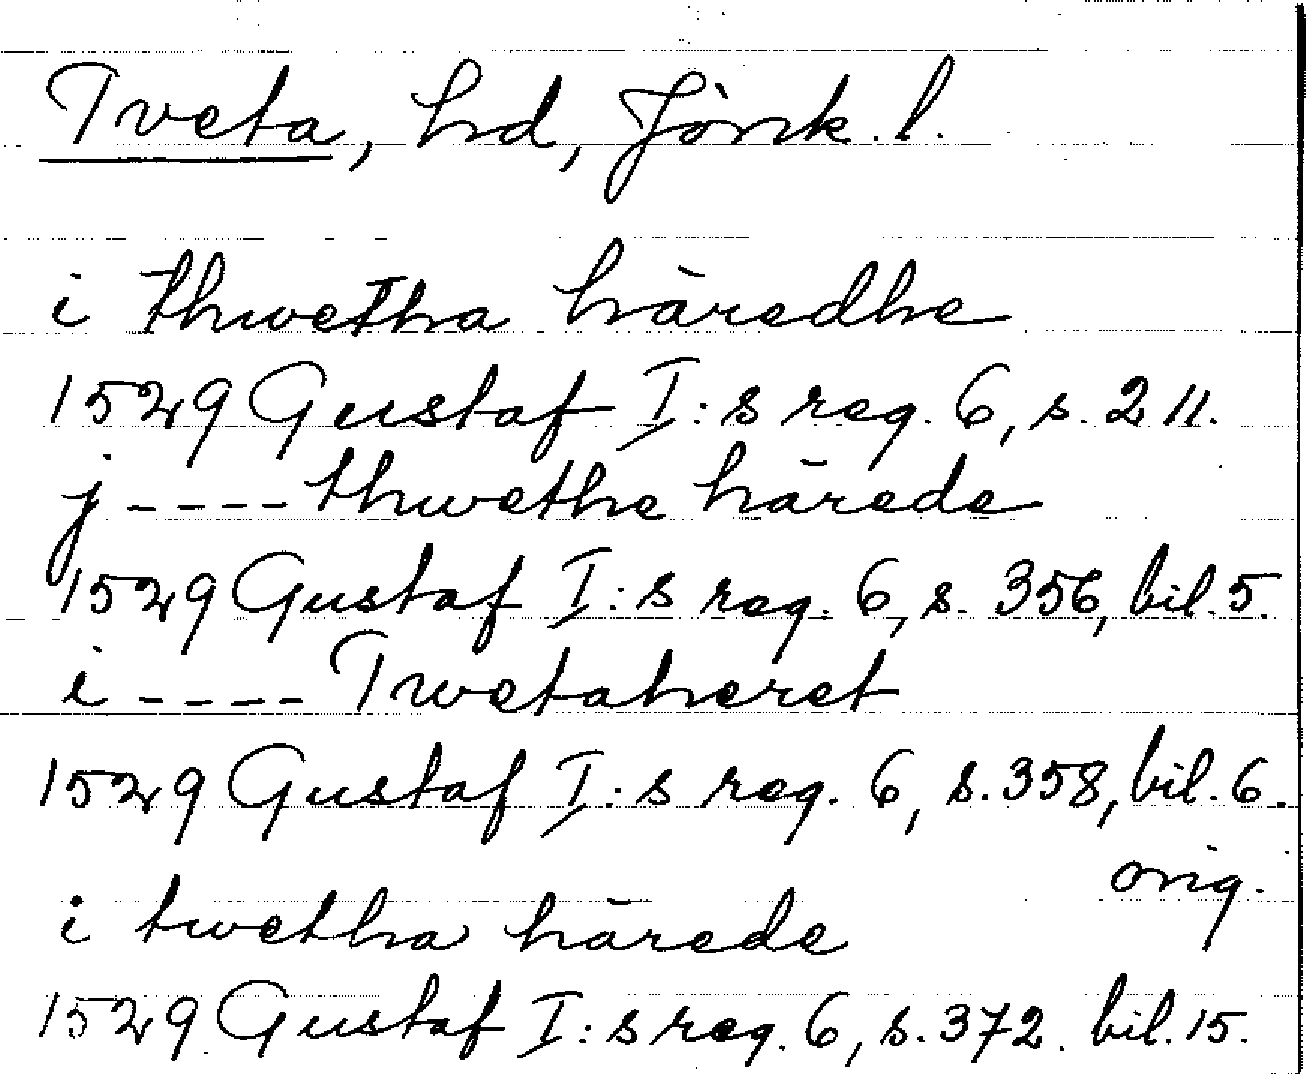 Tveta, hd, Jönk. l.
i thwetha häredhe
1529 Gustaf I:s reg. 6, s. 211.
j ---- thwethe härede
1529 Gustaf I:s reg. 6, s. 356, bil. 5.
i ---- Twetaheret
1529 Gustaf I:s reg. 6, s. 358, bil. 6.
orig.
i twetha härede
1529 Gustaf I:s reg. 6, s. 372. bil. 15.